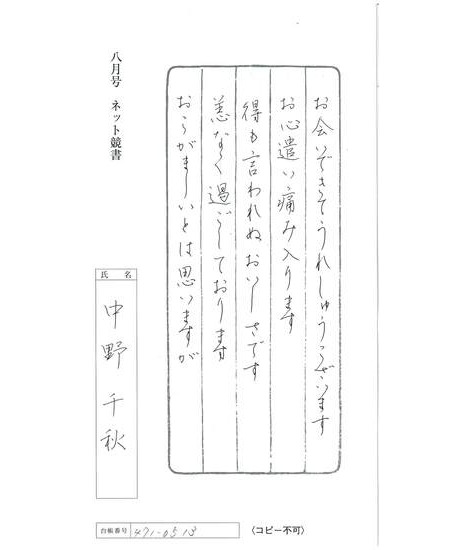 お会いできてうれしゅうございます
お心遣い痛み入ります
得も言われぬおいしさです
恙なく過ごしております
おこがましいとは思いますが
八月号 ネット競書
氏名
中野千秋
台帳番号 471-0513
〈コピー不可〉